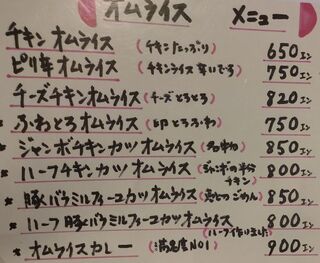 オムライス メニュー
チキンオムライス (チキンたっぷり) 650エン
ピリ辛オムライス (チキンライス辛いでろ) 750エン
チーズチキンオムライス (チーズとろとろ) 820エン
ふわとろオムライス (卵とろふわ) 750エン
ジャンボチキンカツオムライス (名物) 850エン
ハーフチキンカツオムライス (ジャンボの半分チキン) 800エン
豚バラミルフィーユカツオムライス 850エン
ハーフ豚バラミルフィーユカツオムライス (ハーフ作りました) 800エン
オムライスカレー (満足度NO1) 900エン